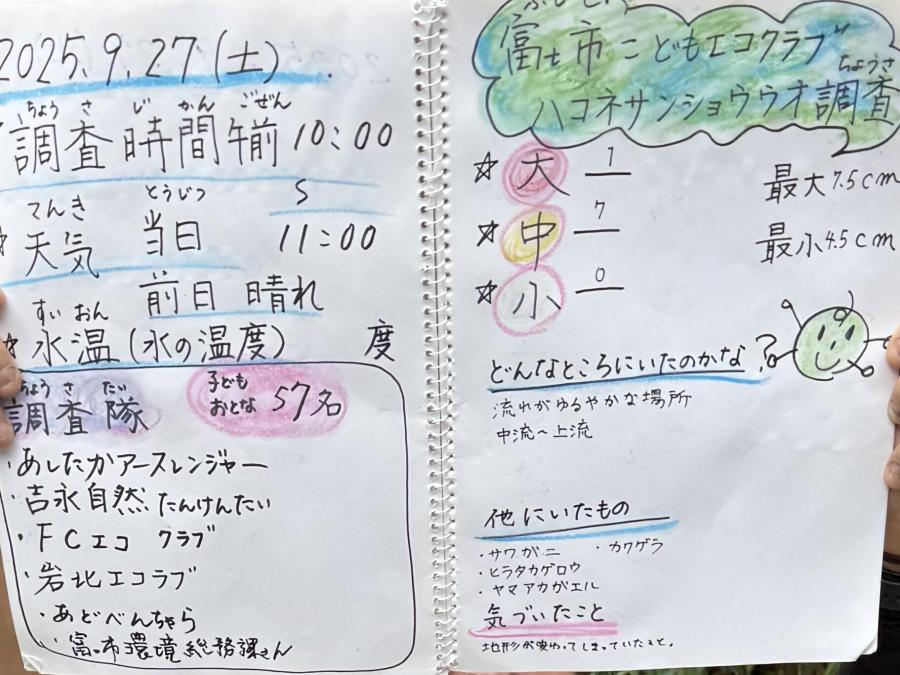 2025.9.27(土)
ちょうさ じかん ごぜん
調査 時間 午前 10:00
S
てんき とうじつ
天気 当日 11:00
前日 晴れ
すいおん
水温(水の温度) 度
ちょうさたい
調査隊
子ども
おとな 57名
・あしたかアースレンジャー
・吉永自然たんけんたい
・FCエコ クラブ
・岩北エコラブ
・あどべんちゃら
・富士市環境総務課さん
富士市こどもエコクラブ
ちょうさ
ハコネサンショウウオ調査
☆ 大 1
最大7.5cm
☆ 中 7
最小4.5cm
☆ 小 0
どんなところにいたのかな?
流れがゆるやかな場所
中流~上流
他にいたもの
・サワガニ ・カワゲラ
・ヒラタカゲロウ
・ヤマアカガエル
気づいたこと
地形が変わってしまっていたこと。